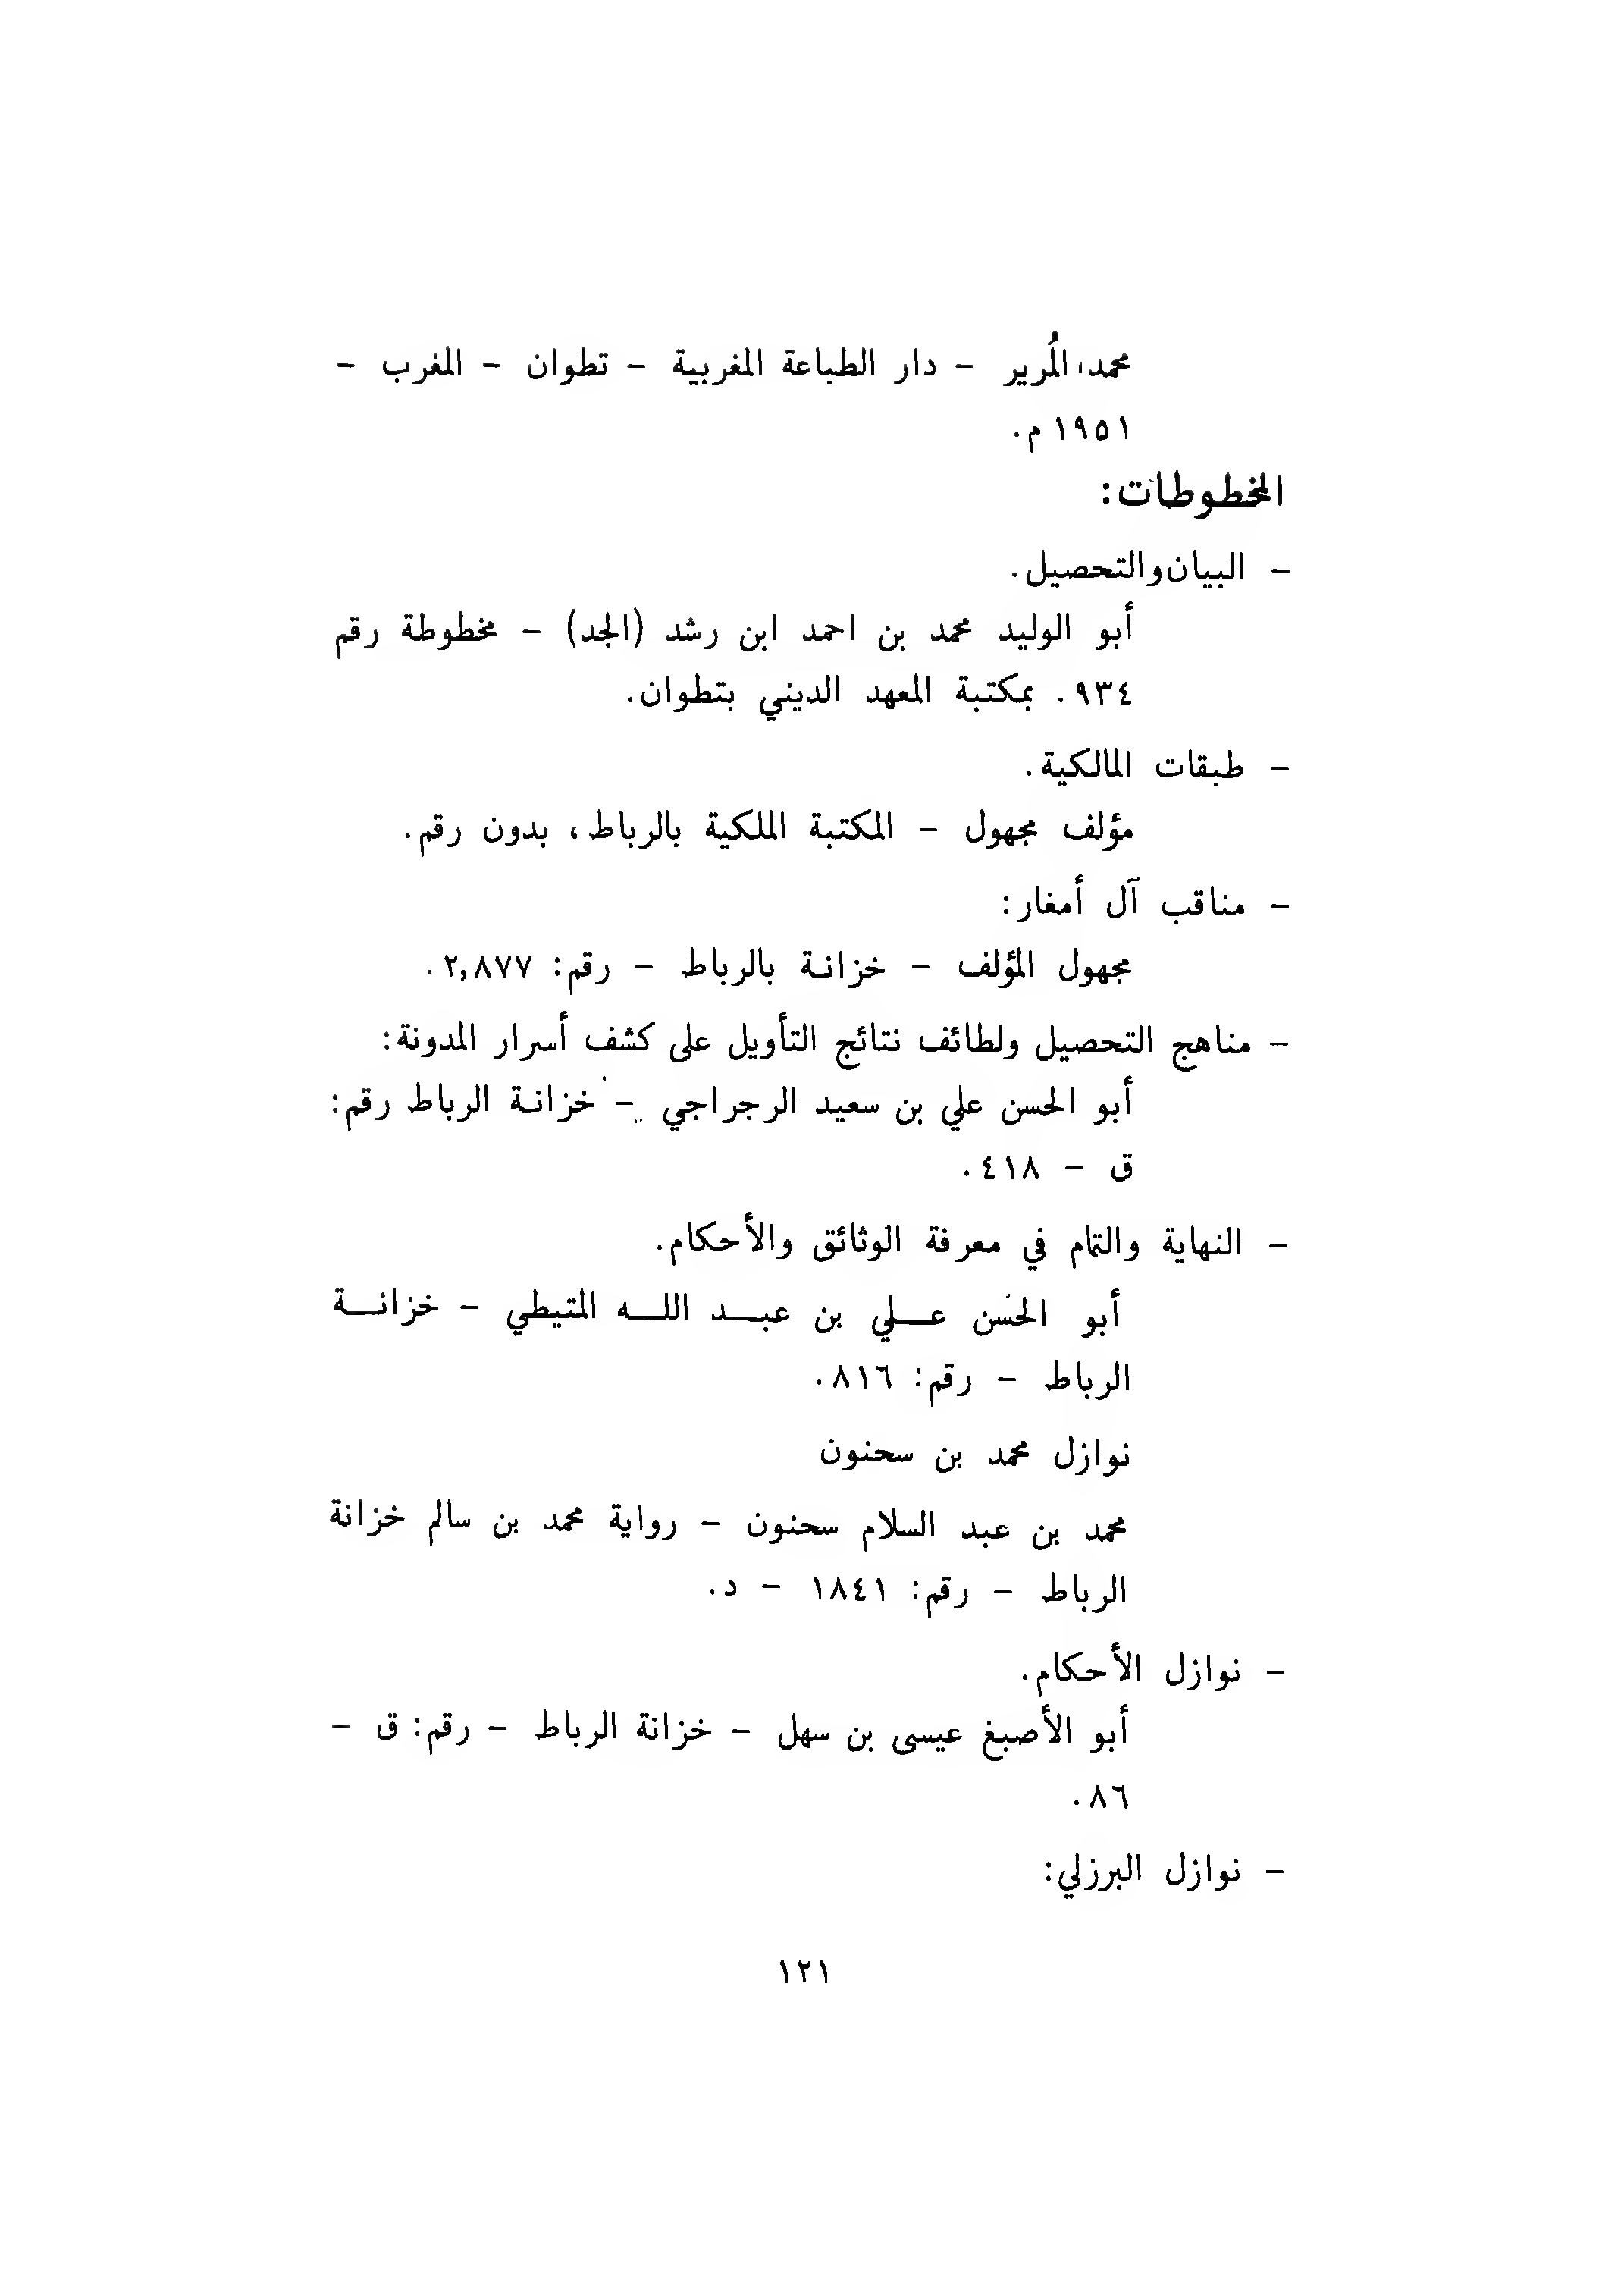 محمد المُرير – دار الطباعة المغربية – تطوان – المغرب –
١٩٥١ م.
المخطوطات:
– البيان والتحصيل.
أبو الوليد محمد بن احمد ابن رشد (الجد) – مخطوطة رقم
٩٣٤. بمكتبة المعهد الديني بتطوان.
– طبقات المالكية.
مؤلف مجهول – المكتبة الملكية بالرباط، بدون رقم.
– مناقب آل أمغار:
مجهول المؤلف – خزانة بالرباط – رقم: ٢,٨٧٧.
– مناهج التحصيل ولطائف نتائج التأويل على كشف أسرار المدونة:
أبو الحسن علي بن سعيد الرجراجي – خزانة الرباط رقم:
ق – ٤١٨.
– النهاية والتمام في معرفة الوثائق والأحكام.
أبو الحسن علي بن عبد الله المتيطي – خزانة
الرباط – رقم: ٨١٦.
نوازل محمد بن سحنون
محمد بن عبد السلام سحنون – رواية محمد بن سالم خزانة
الرباط – رقم: ١٨٤١ – د.
– نوازل الأحكام.
أبو الأصبغ عيسى بن سهل – خزانة الرباط – رقم: ق –
٨٦.
– نوازل البرزلي:
١٢١